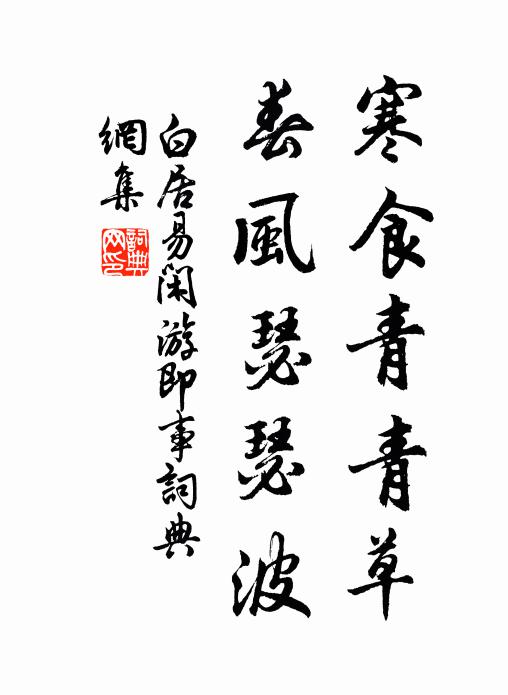 寒食青青草
春風瑟瑟波
白居易閑游即事詞典
網集
詞典
网印